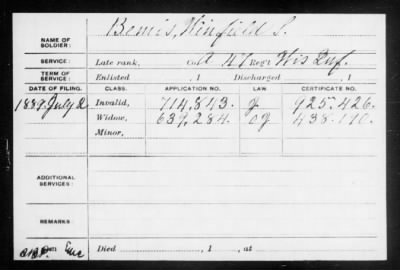 NAME OF SOLDIER: Bemis, Winfield S.
SERVICE: Late rank, Co. A 47 Reg't Wis Inf.
TERM OF SERVICE: Enlisted , 1 Discharged , 1
DATE OF FILING. CLASS. APPLICATION NO. LAW. CERTIFICATE NO.
1889 July 2 Invalid, 714.843. 925.426.
Widow, 639.284. 438.110.
Minor,
ADDITIONAL SERVICES:
REMARKS
Died , 1 , at